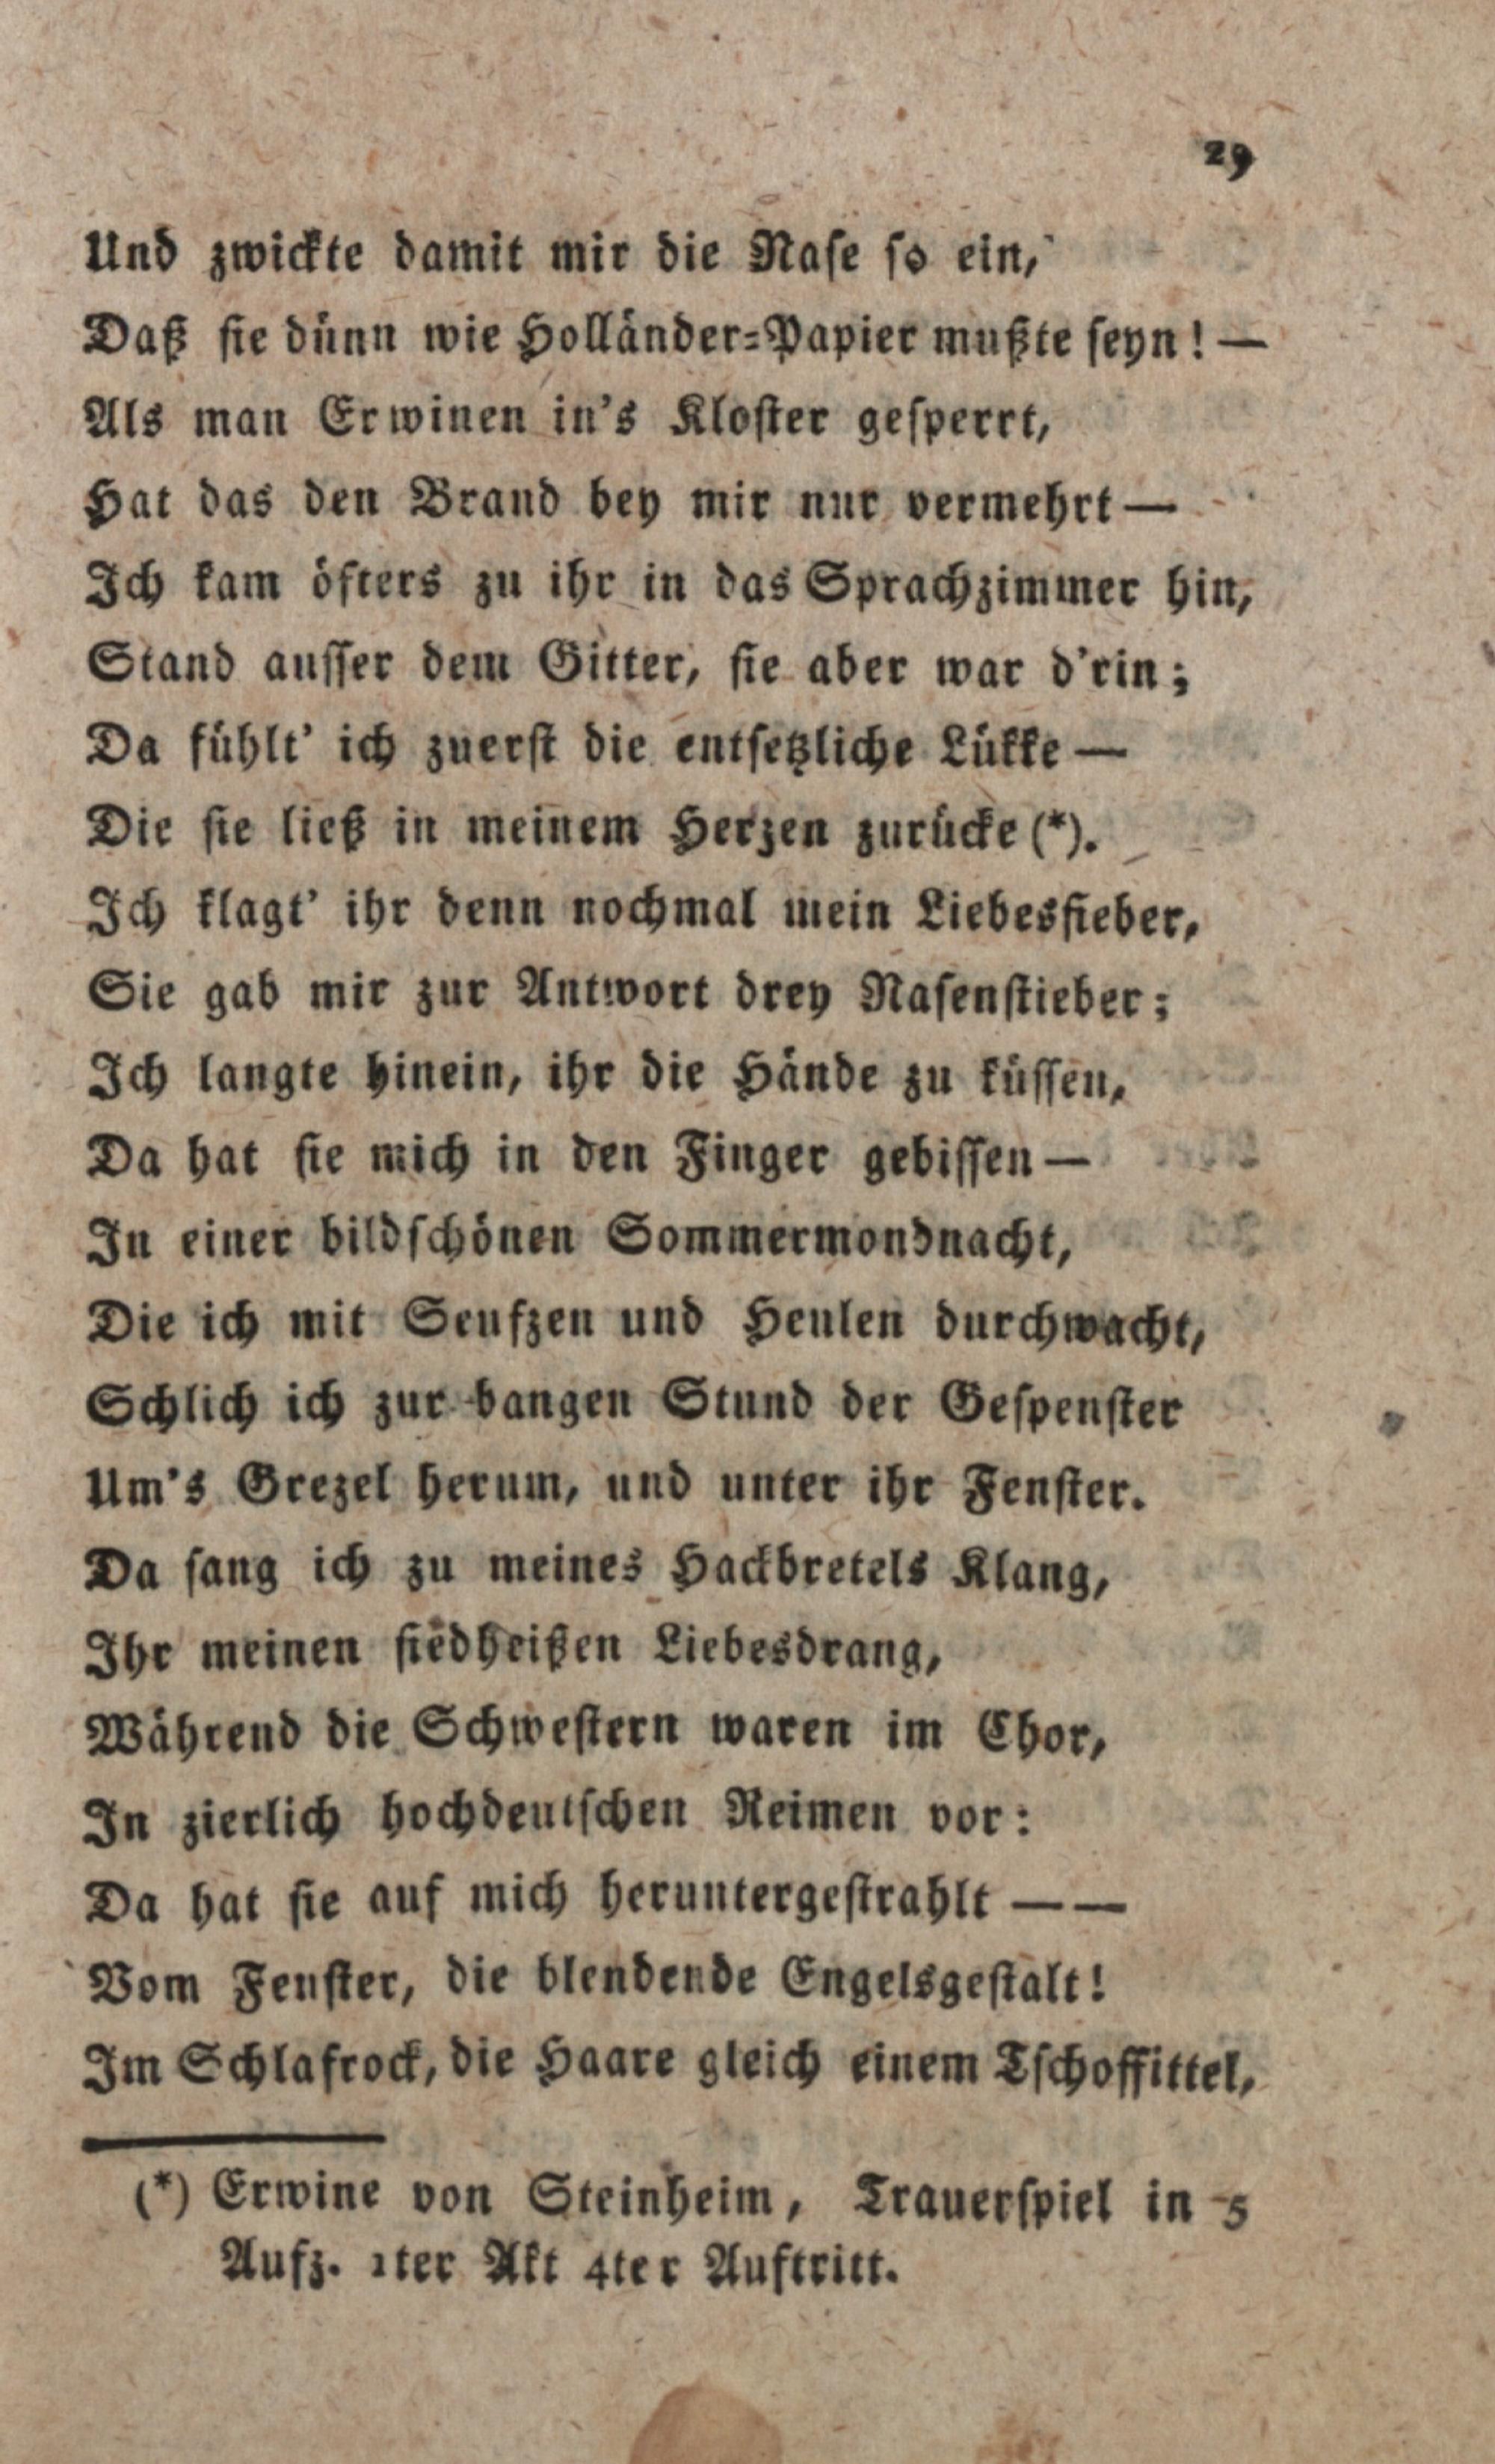 29
Und zwickte damit mir die Nase so ein,
Daß sie dünn wie Holländer-Papier mußte seyn! —
Als man Erwinen in's Kloster gesperrt,
Hat das den Brand bey mir nur vermehrt —
Ich kam öfters zu ihr in das Sprachzimmer hin,
Stand ausser dem Gitter, sie aber war d'rin;
Da fühlt' ich zuerst die entsetzliche Lükke —
Die sie ließ in meinem Herzen zurücke (*).
Ich klagt' ihr denn nochmal mein Liebesfieber,
Sie gab mir zur Antwort drey Nasenstieber;
Ich langte hinein, ihr die Hände zu küssen,
Da hat sie mich in den Finger gebissen —
In einer bildschönen Sommermondnacht,
Die ich mit Seufzen und Heulen durchwacht,
Schlich ich zur bangen Stund der Gespenster
Um's Grezel herum, und unter ihr Fenster.
Da sang ich zu meines Hackbretels Klang,
Ihr meinen siedheißen Liebesdrang,
Während die Schwestern waren im Chor,
In zierlich hochdeutschen Reimen vor:
Da hat sie auf mich heruntergestrahlt — —
Vom Fenster, die blendende Engelsgestalt!
Im Schlafrock, die Haare gleich einem Tschoffittel,
(*) Erwine von Steinheim, Trauerspiel in 5
Aufz. 1ter Akt 4ter Auftritt.